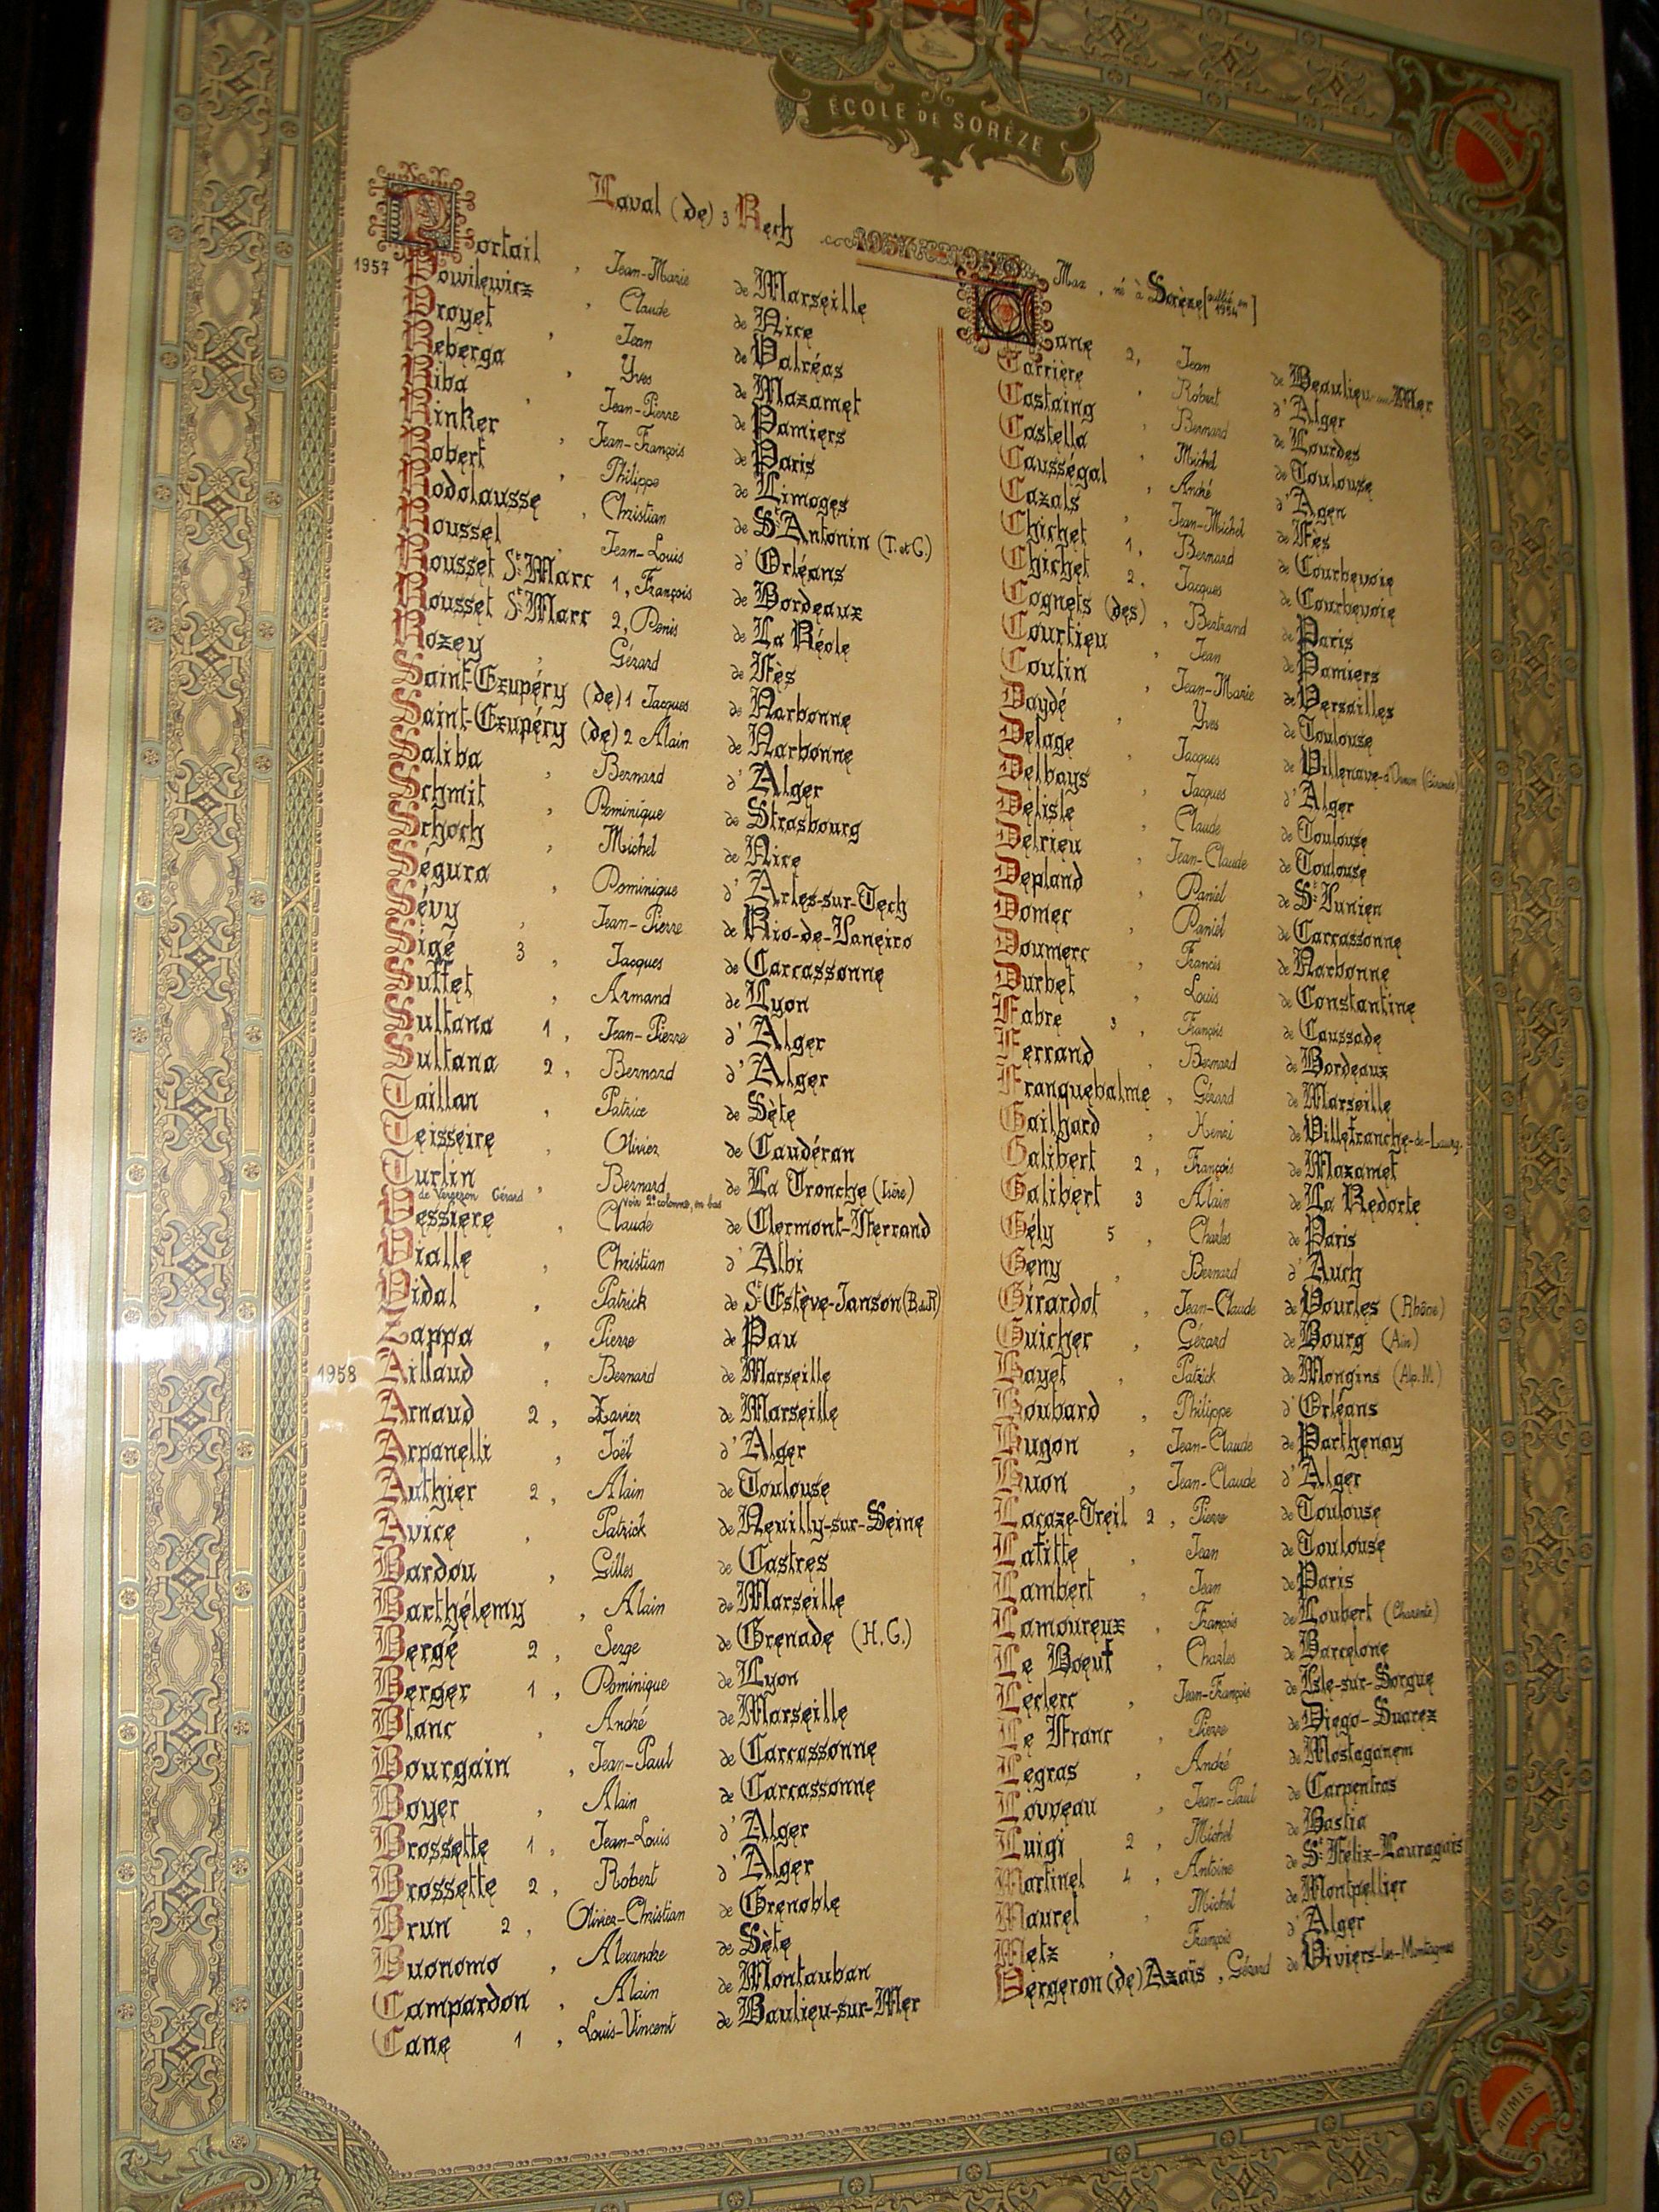 ÉCOLE DE SORÈZE
RELIGIONI
Laval (de) 3 Rech
Max, né à Sorèze [oublié en 1924]
1957
Portail , Jean-Marie de Marseille
Claude de Nice
Proyet , Jean de Valréas
Reberga , Yves de Mazamet
Riba , Jean-Pierre de Pamiers
Rinker , Jean-François de Paris
Robert , Philippe de Limoges
Rodolausse , Christian de St Antonin (T. et G.)
Roussel , Jean-Louis d'Orléans
Rousset St Marc 1, François de Bordeaux
Rousset St Marc 2, Denis de La Réole
Rozey , Gérard de Fès
Saint-Exupéry (de) 1 Jacques de Narbonne
Saint-Exupéry (de) 2 Alain de Narbonne
Saliba , Bernard d'Alger
Schmit , Dominique de Strasbourg
Schoch , Michel de Nice
Ségura , Dominique d'Arles-sur-Tech
Sévy , Jean-Pierre de Rio-de-Janeiro
Sigé 3 , Jacques de Carcassonne
Suffet , Armand de Lyon
Sultana 1 , Jean-Pierre d'Alger
Sultana 2 , Bernard d'Alger
Taillan , Patrice de Sète
Teisseire , Olivier de Caudéran
Turlin , Bernard de La Tronche (Isère)
de Vergeron Gérard voir 2e colonne, en bas
Vessière , Claude de Clermont-Ferrand
Vialle , Christian d'Albi
Vidal , Patrick de St Estève-Janson (B.du R)
Zappa , Pierre de Pau
1958 Aillaud , Bernard de Marseille
Arnaud 2 , Xavier de Marseille
Arpanelli , Joël d'Alger
Authier 2 , Alain de Toulouse
Avice , Patrick de Neuilly-sur-Seine
Bardou , Gilles de Castres
Barthélemy , Alain de Marseille
Bergé 2 , Serge de Grenade (H.G.)
Berger 1 , Dominique de Lyon
Blanc , André de Marseille
Bourgain , Jean-Paul de Carcassonne
Boyer , Alain de Carcassonne
Brossette 1 , Jean-Louis d'Alger
Brossette 2 , Robert d'Alger
Brun 2 , Olivier-Christian de Grenoble
Buonomo , Alexandre de Sète
Campardon , Alain de Montauban
Cane 1 , Louis-Vincent de Baulieu-sur-Mer
Cane 2, Jean de Beaulieu-sur-Mer
Carrière , Robert d'Alger
Castaing , Bernard de Lourdes
Castella , Michel de Toulouse
Causségal , André d'Agen
Cazals , Jean-Michel de Fès
Chichet 1, Bernard de Courbevoie
Chichet 2, Jacques de Courbevoie
Cognets (des) , Bertrand de Paris
Courtieu , Jean de Pamiers
Coutin , Jean-Marie de Versailles
Daydé , Yves de Toulouse
Delage , Jacques de Villenave-d'Ornon (Gironde)
Delbays , Jacques d'Alger
Delisle , Claude de Toulouse
Delrieu , Jean-Claude de Toulouse
Depland , Daniel de St Junien
Domec , Daniel de Carcassonne
Doumerc , Francis de Narbonne
Durbet , Louis de Constantine
Fabre 3 , François de Caussade
Ferrand , Bernard de Bordeaux
Franquebalme , Gérard de Marseille
Gailhard , Henri de Villefranche-de-Laurg.
Galibert 2 , François de Mazamet
Galibert 3 Alain de La Redorte
Gély 5 , Charles de Paris
Geny , Bernard d'Auch
Girardot , Jean-Claude de Vourles (Rhône)
Guicher , Gérard de Bourg (Ain)
Hayet , Patrick de Mongins (Alp.M.)
Houbard , Philippe d'Orléans
Hugon , Jean-Claude de Parthenay
Huon , Jean-Claude d'Alger
Lacaze-Treil 2 , Pierre de Toulouse
Lafitte , Jean de Toulouse
Lambert , Jean de Paris
Lamoureux , François de Loubert (Charente)
Le Bœuf , Charles de Barcelone
Leclerc , Jean-François de Isle-sur-Sorgue
Le Franc , Pierre de Diego-Suarez
Legras , André de Mostaganem
Louveau , Jean-Paul de Carpentras
Luigi 2 , Michel de Bastia
Martinel 4 , Antoine de St Félix-Lauragais
Maurel , Michel de Montpellier
Metz , François d'Alger
Vergeron (de) Azaïs , Gérard de Viviers-les-Montagnes
ARMIS